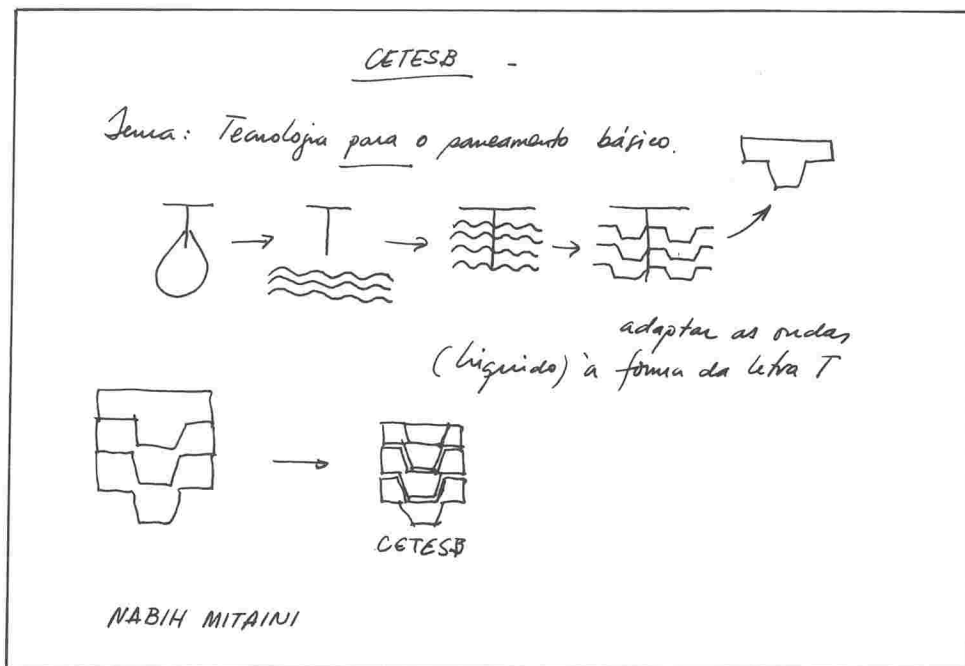 CETESB -
Tema: Tecnologia para o saneamento básico.
adaptar as ondas
(líquido) à forma da letra T
CETESB
NABIH MITAINI